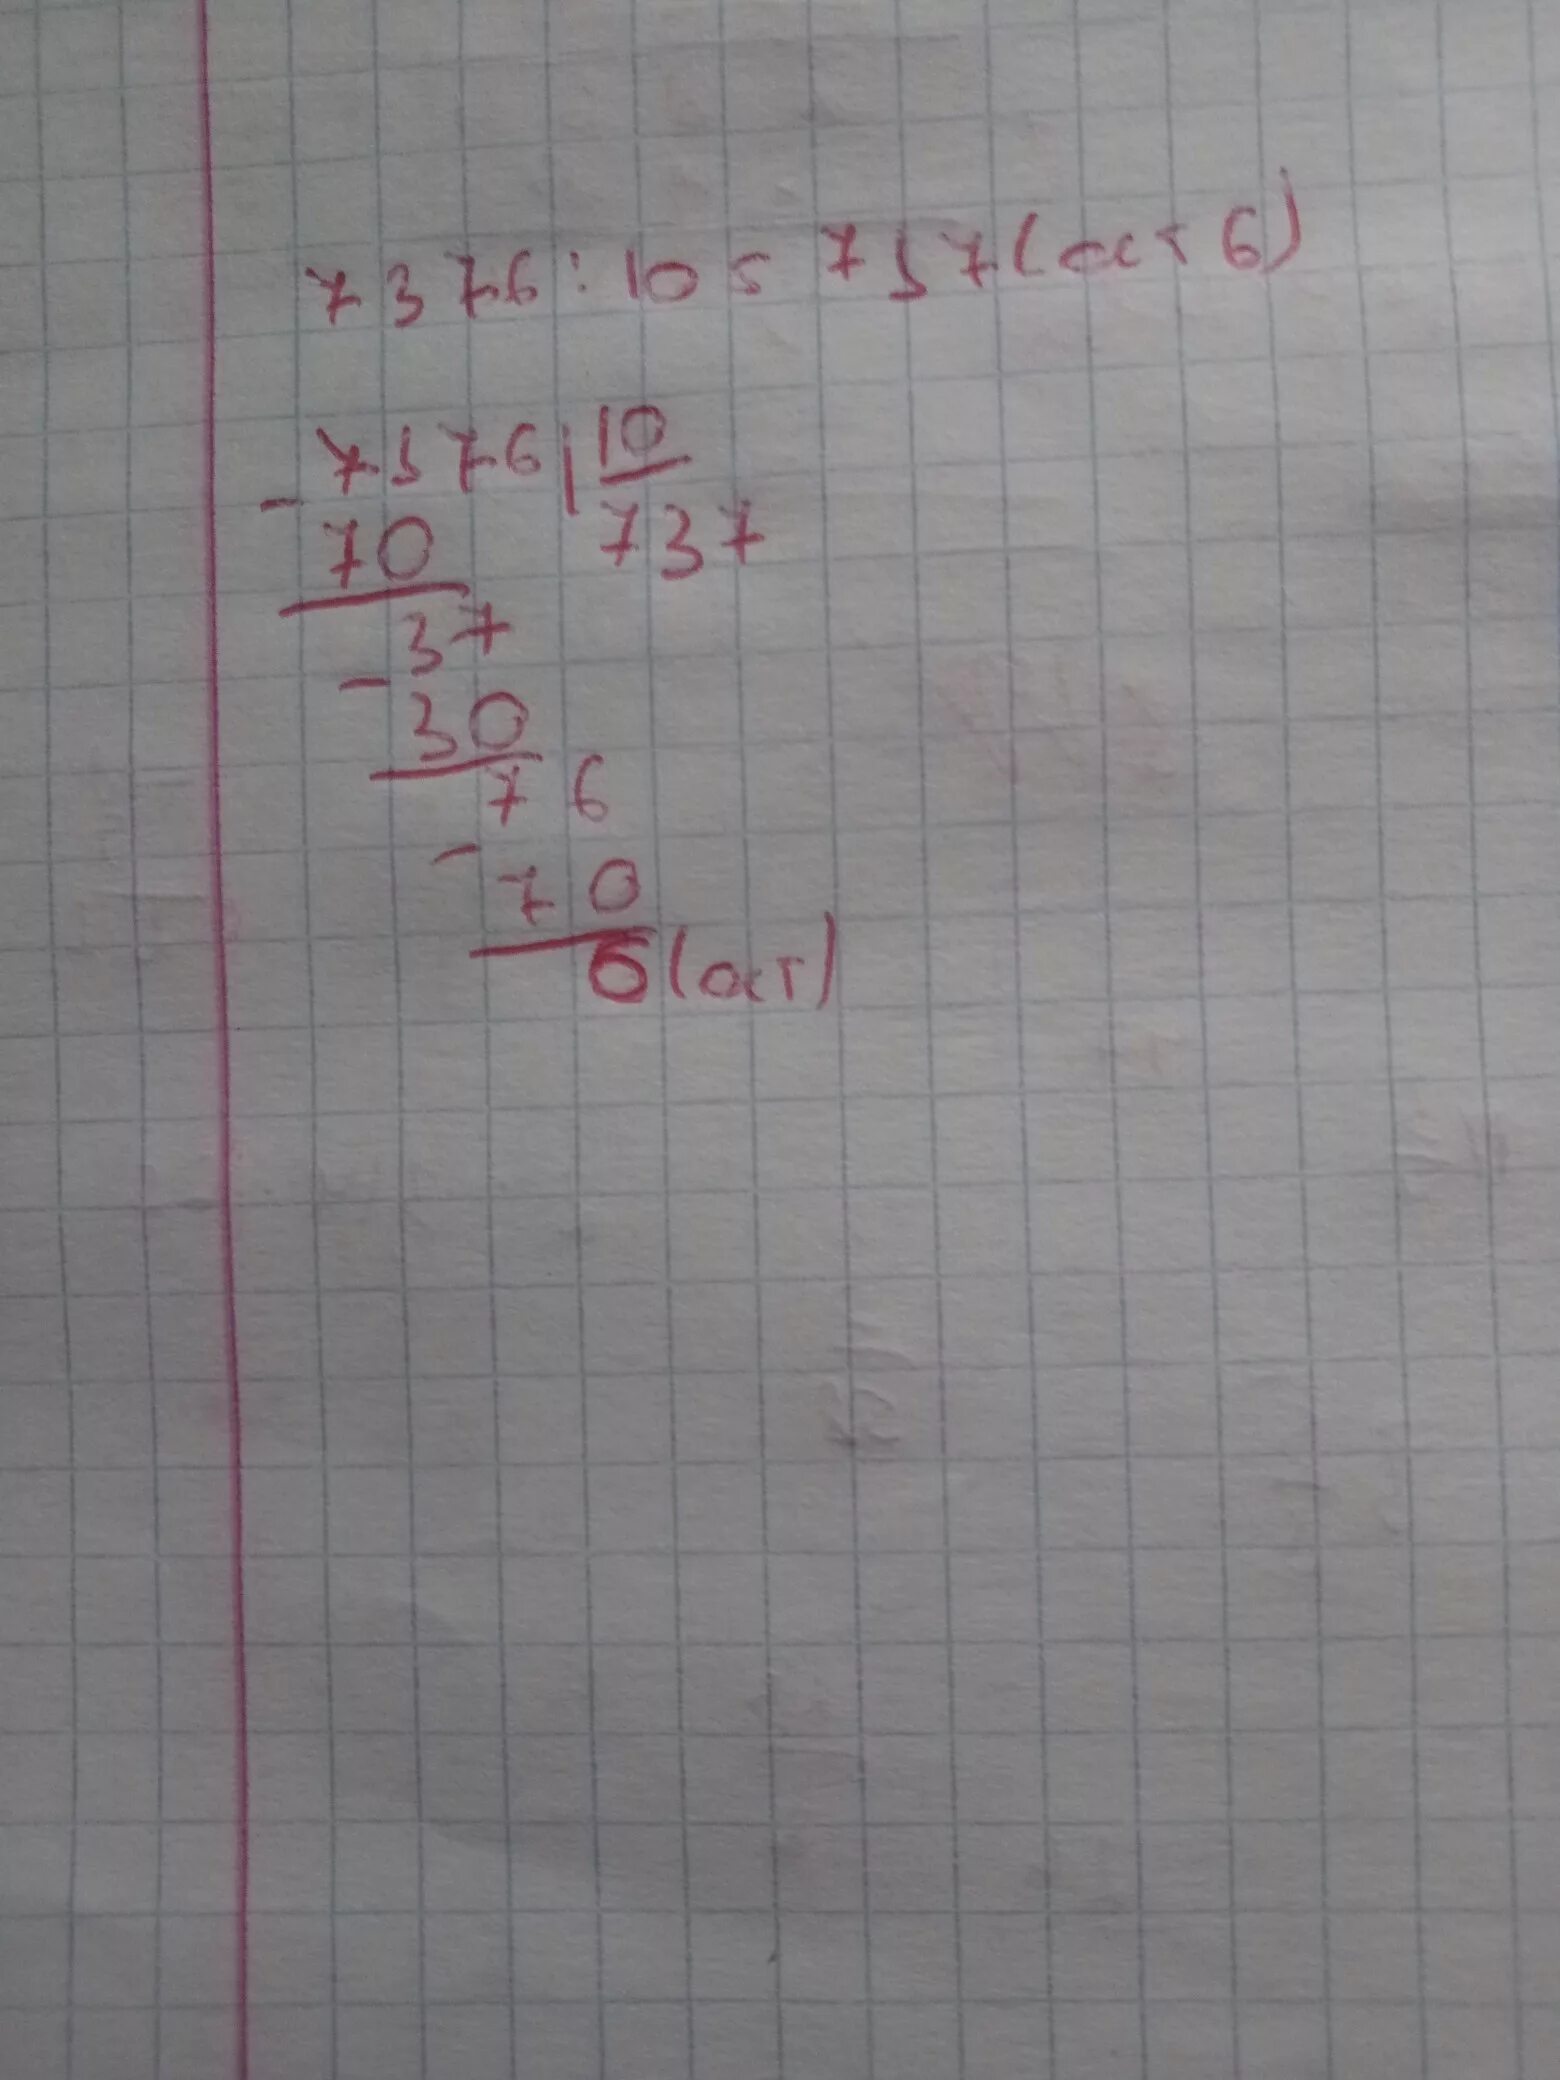 7376:10=737(ост 6)
7376|10
-
70 737
37
-
30
76
-
70
6(ост)